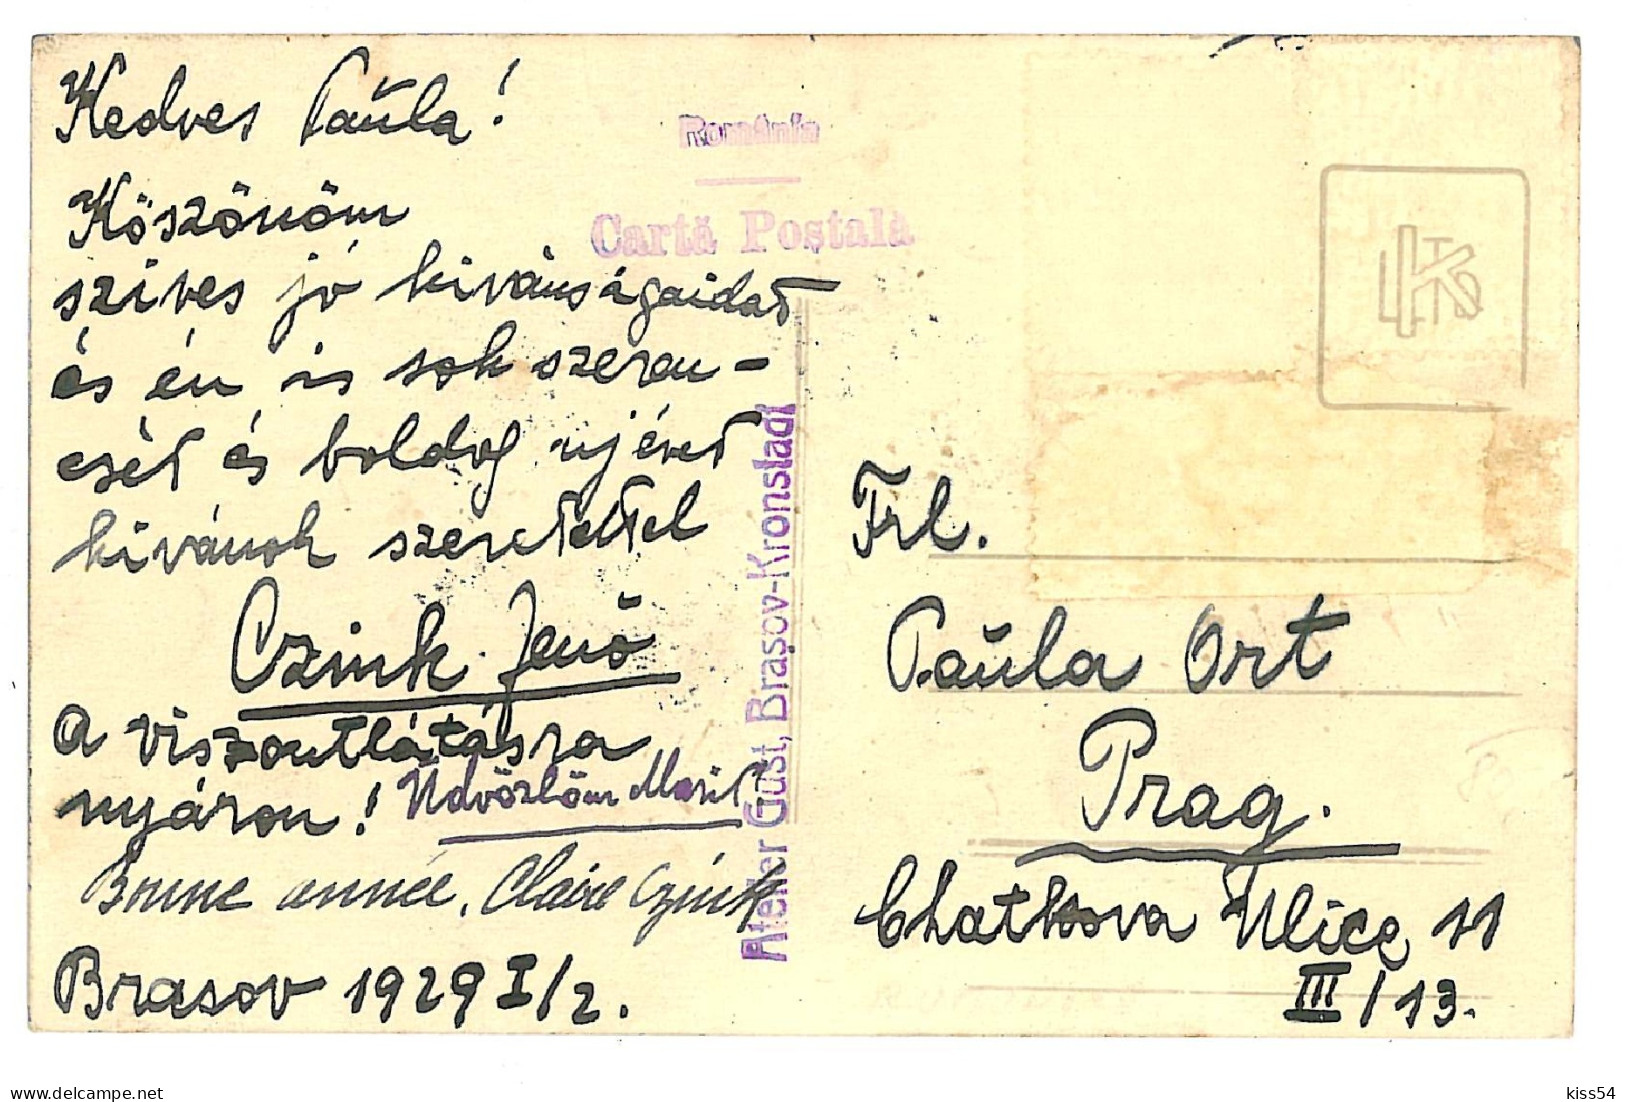 Kedves Paŭla!
Köszönöm
szives jó kivánságaidat
és én is sok szeren-
csét és boldog ujévet
kivánok szeretettel
Czink Jenő
A viszontlátásra
nyáron! Üdvözlöm
Bonne année, Claire Czink
Brasov 1929 I/2.
România
Cartă Poștală
Atelier Gust, Brașov-Kronstadt
Frl.
Paŭla Ort
Prag.
Chatkova Ulice 11
III/13.
delcampe.net
kiss54